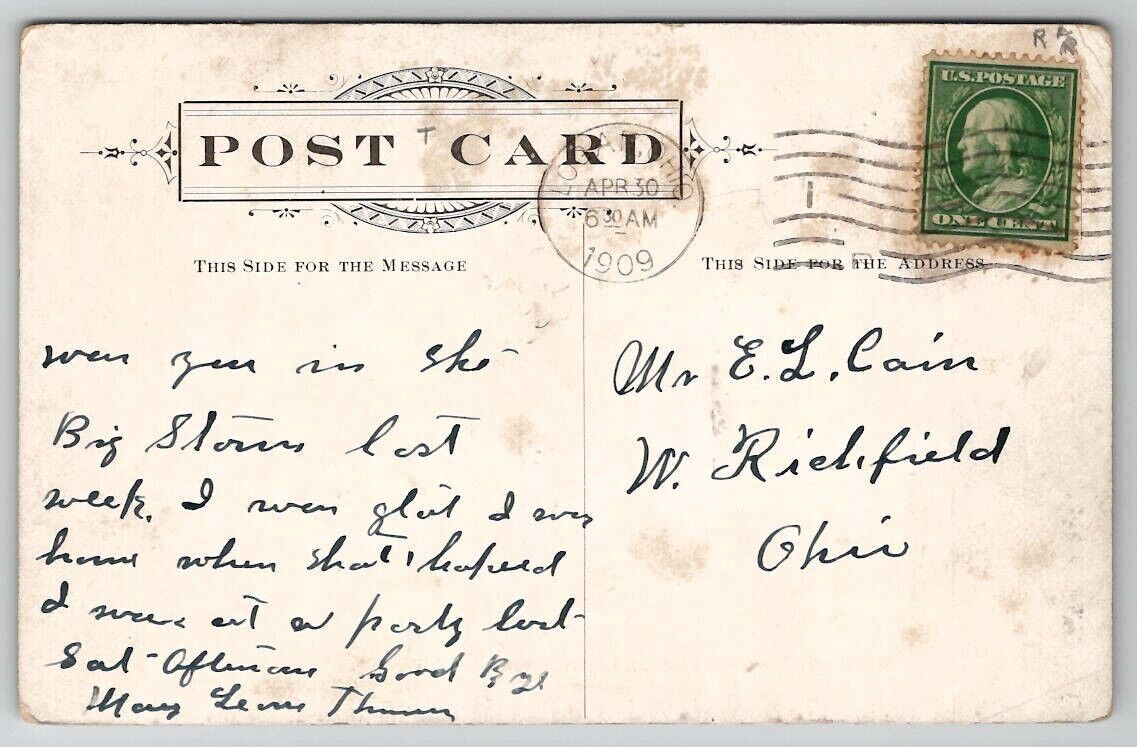 R
POST CARD
T
U.S. POSTAGE
ONE CENT
APR 30
6 30 AM
1909
THIS SIDE FOR THE MESSAGE
THIS SIDE FOR THE ADDRESS
Mr E. L. Cain
W. Richfield
Ohio
were you in the
Big Storm last
week. I was glad I was
home when that hapend
I was at a party last
Sat Afternoon Good Bye
Mary